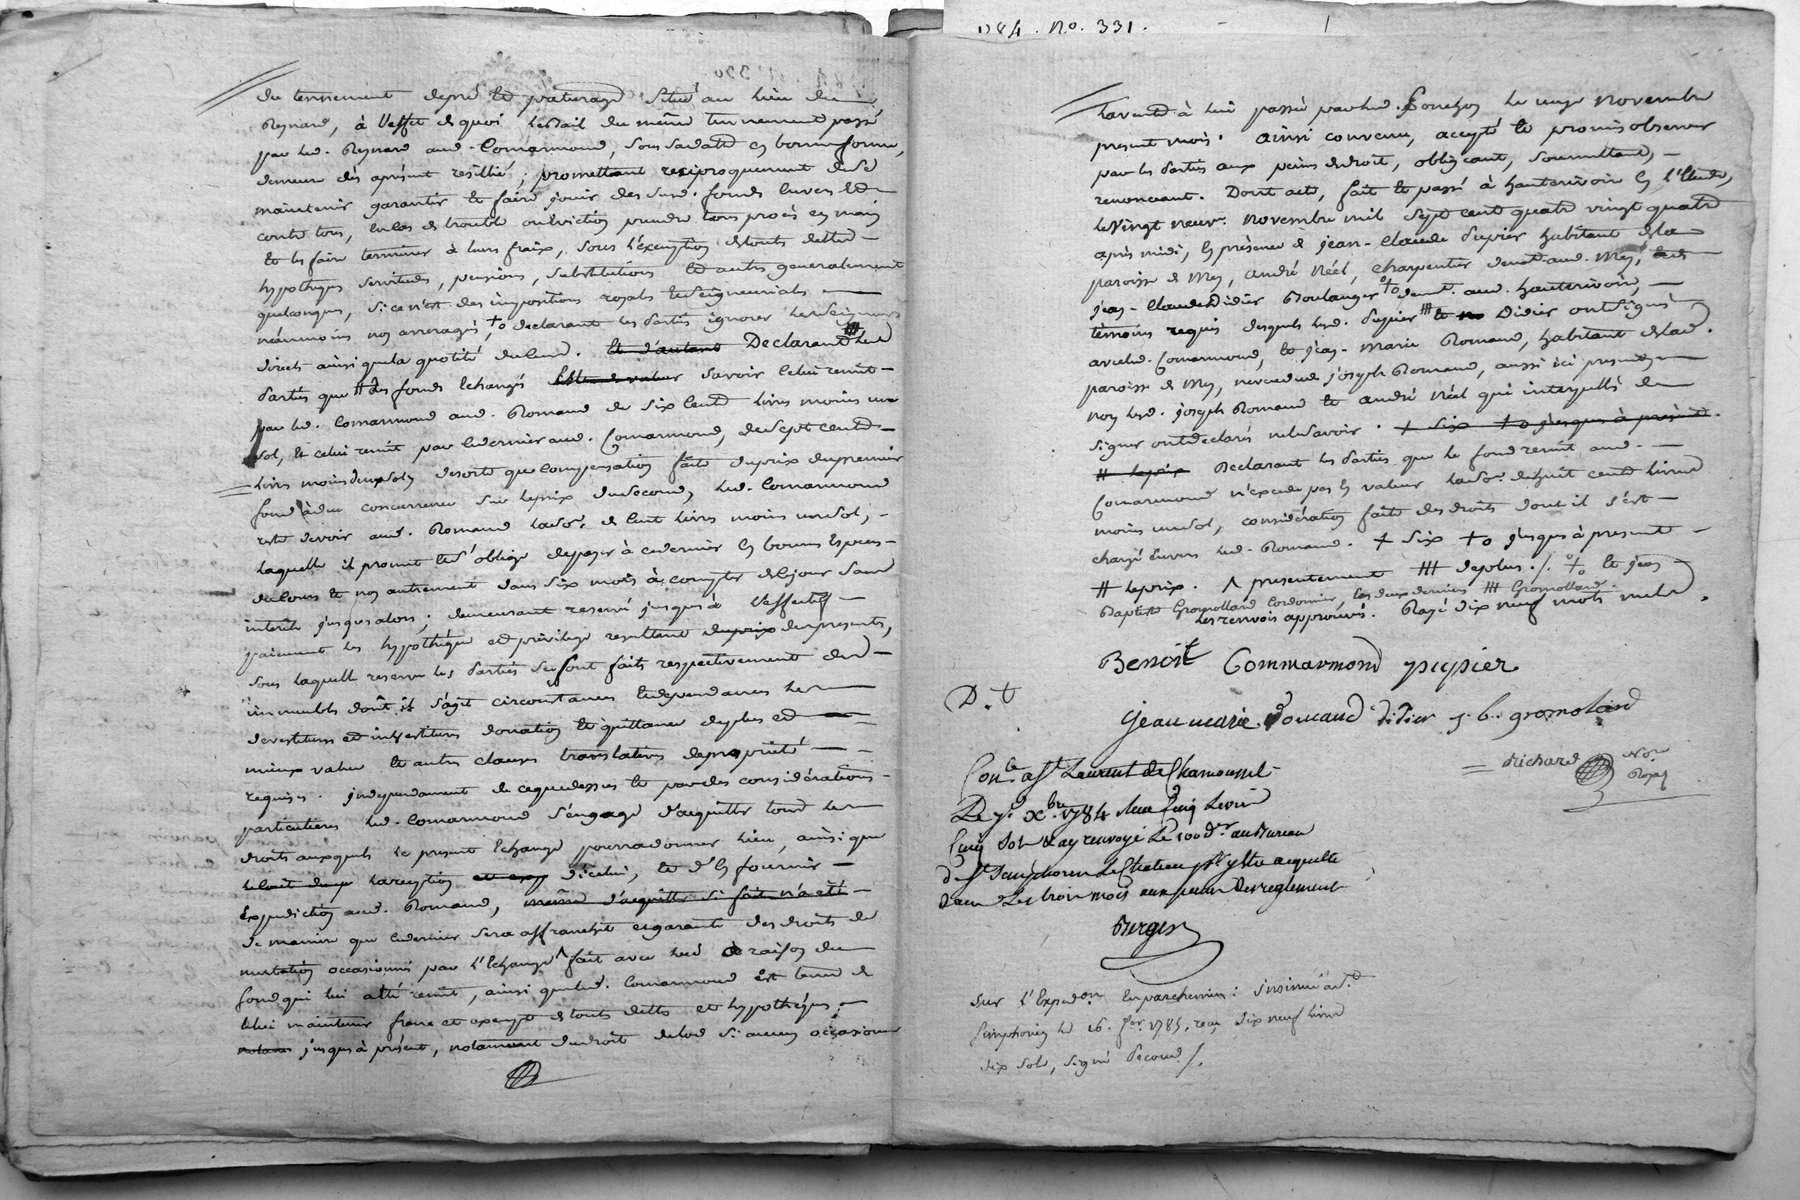 du tennement depré et paturage situé au lieu du
Reynard, à l'effet de quoi le bail du même tennement passé
par led. Reynard aud. Comarmond, sous sa datte en bonne forme,
demeure dès aprésent resillié; promettant reciproquement de se
maintenir garantir et faire jouir des susd. fonds envers et
contre tous, en cas de trouble ou éviction prendre tous procès en main
et les faire terminer à leurs fraix, sous l'éxemption de touts dettes
hypotheques servitudes, pensions, substitutions et autres generalement
quelconques, si ce n'est des impositions royales et seigneuriales
néanmoins non arreragés, +o declarant les parties ignorer les seigneurs
directs ainsi que la quotité du cens. et d'autant Declarant les
parties que # des fonds échangés savoir celui remit
par led. Comarmond aud. Romand de six cents livres moins un
sol, et celui remit par ce dernier aud. Comarmond, de sept cents
livres moins deux sols, desorte que compensation faite du prix du premier
fond à due concurrence sur le prix du second, led. Comarmond
reste devoir aud. Romand la so.e de cent livres moins un sol,
laquelle il promet et s'oblige de payer à ce dernier en bonnes especes
de cours et non autrement dans six mois à compter de ce jour sans
intérêts jusqu'alors; demeurant reservé jusqu'à l'effectif
paiement les hypotheque et privilege resultant du prix des presentes,
sous laquelle reserve les parties se sont faits respectivement des
immeubles dont il s'agit circonstances et dependances les
devestitures et investitures donation et quittance de plus et
mieux value et autres clauses translatives de proprieté
requises. independament de ce que dessus et par des considérations
particulieres led. Comarmond s'engage d'acquitter tous les
droits auxquels le present échange pourra donner lieu, ainsi que
la reception d'icelui, et d'en fournir
Expedition aud. Romand, même d'acquitter si fait n'a été
de maniere que ce dernier sera affranchit et garanti des droits de
mutation occasionnés par l'échange ^ fait avec led à raison du
fond qui lui a été remit, ainsi que led. Comarmond est tenu de
celui maintenir franc et exempt de touts dettes et hypotheques
jusqu'à présent, notamment du droit de lod si aucun occasionne
1784. No. 331.
la vente à lui passée par led. Ponchon le onze novembre
present mois. Ainsi convenu, accepté et promis observer
par les parties aux peines de droit, obligeant, soumettant,
renonceant. Dont acte, fait et passé à hauterivoir en l'Etude,
le vingt neuv. novembre mil sept cent quatre vingt quatre
après midi, en présence de jean-Claude Pupier habitant de la
paroisse de Mey, andré Néel, charpentier demt. aud. Mey,
jean-Claude Didier Boulanger % demt. aud. hauterivoir,
témoins requis desquels led. Pupier ### et Didier ont signé
avec led. Comarmond, et jean-Marie Romand, habitant de lad.
paroisse de Mey, neveu dud. joseph Romand, aussi ici present,
non led. joseph Romand et andré Néel qui interpellés de
signer ont declaré ne le savoir. + six +o jusques à présent.
# le prix Declarant les parties que le fond remit aud.
Comarmond n'excede pas en valeur la so.e de huit cents livres
moins un sol, considération faite des droits dont il s'est
chargé envers led. Romand. + six +o jusques à present
# le prix. ^ presentement ### de plus./. % et jean
Baptiste Gromolland Cordonier, les deux derniers ### Gromolland.
les renvois approuvés. Rayé dix neuf mots nuls.
Benoit Commarmond pupier
D. t
jean marie Romand didier j. b. gromolard
richard No.re
Royal
Con.le a St Laurent de Chamousset
Le 7.e Xbre 1784 Reçu Cinq Livres
Cinq Sols et ay renvoyé Le 100.e d.er au Bureau
de St Simphorien Le Chateau p.r y être acquitté
dans Les trois mois aux peines Des reglement
Berger
Sur l'Expedon En parchemin: insinué à St
Simphorien le 26. fer. 1785, reçu dix neuf livres
dix sols, signé Second /.